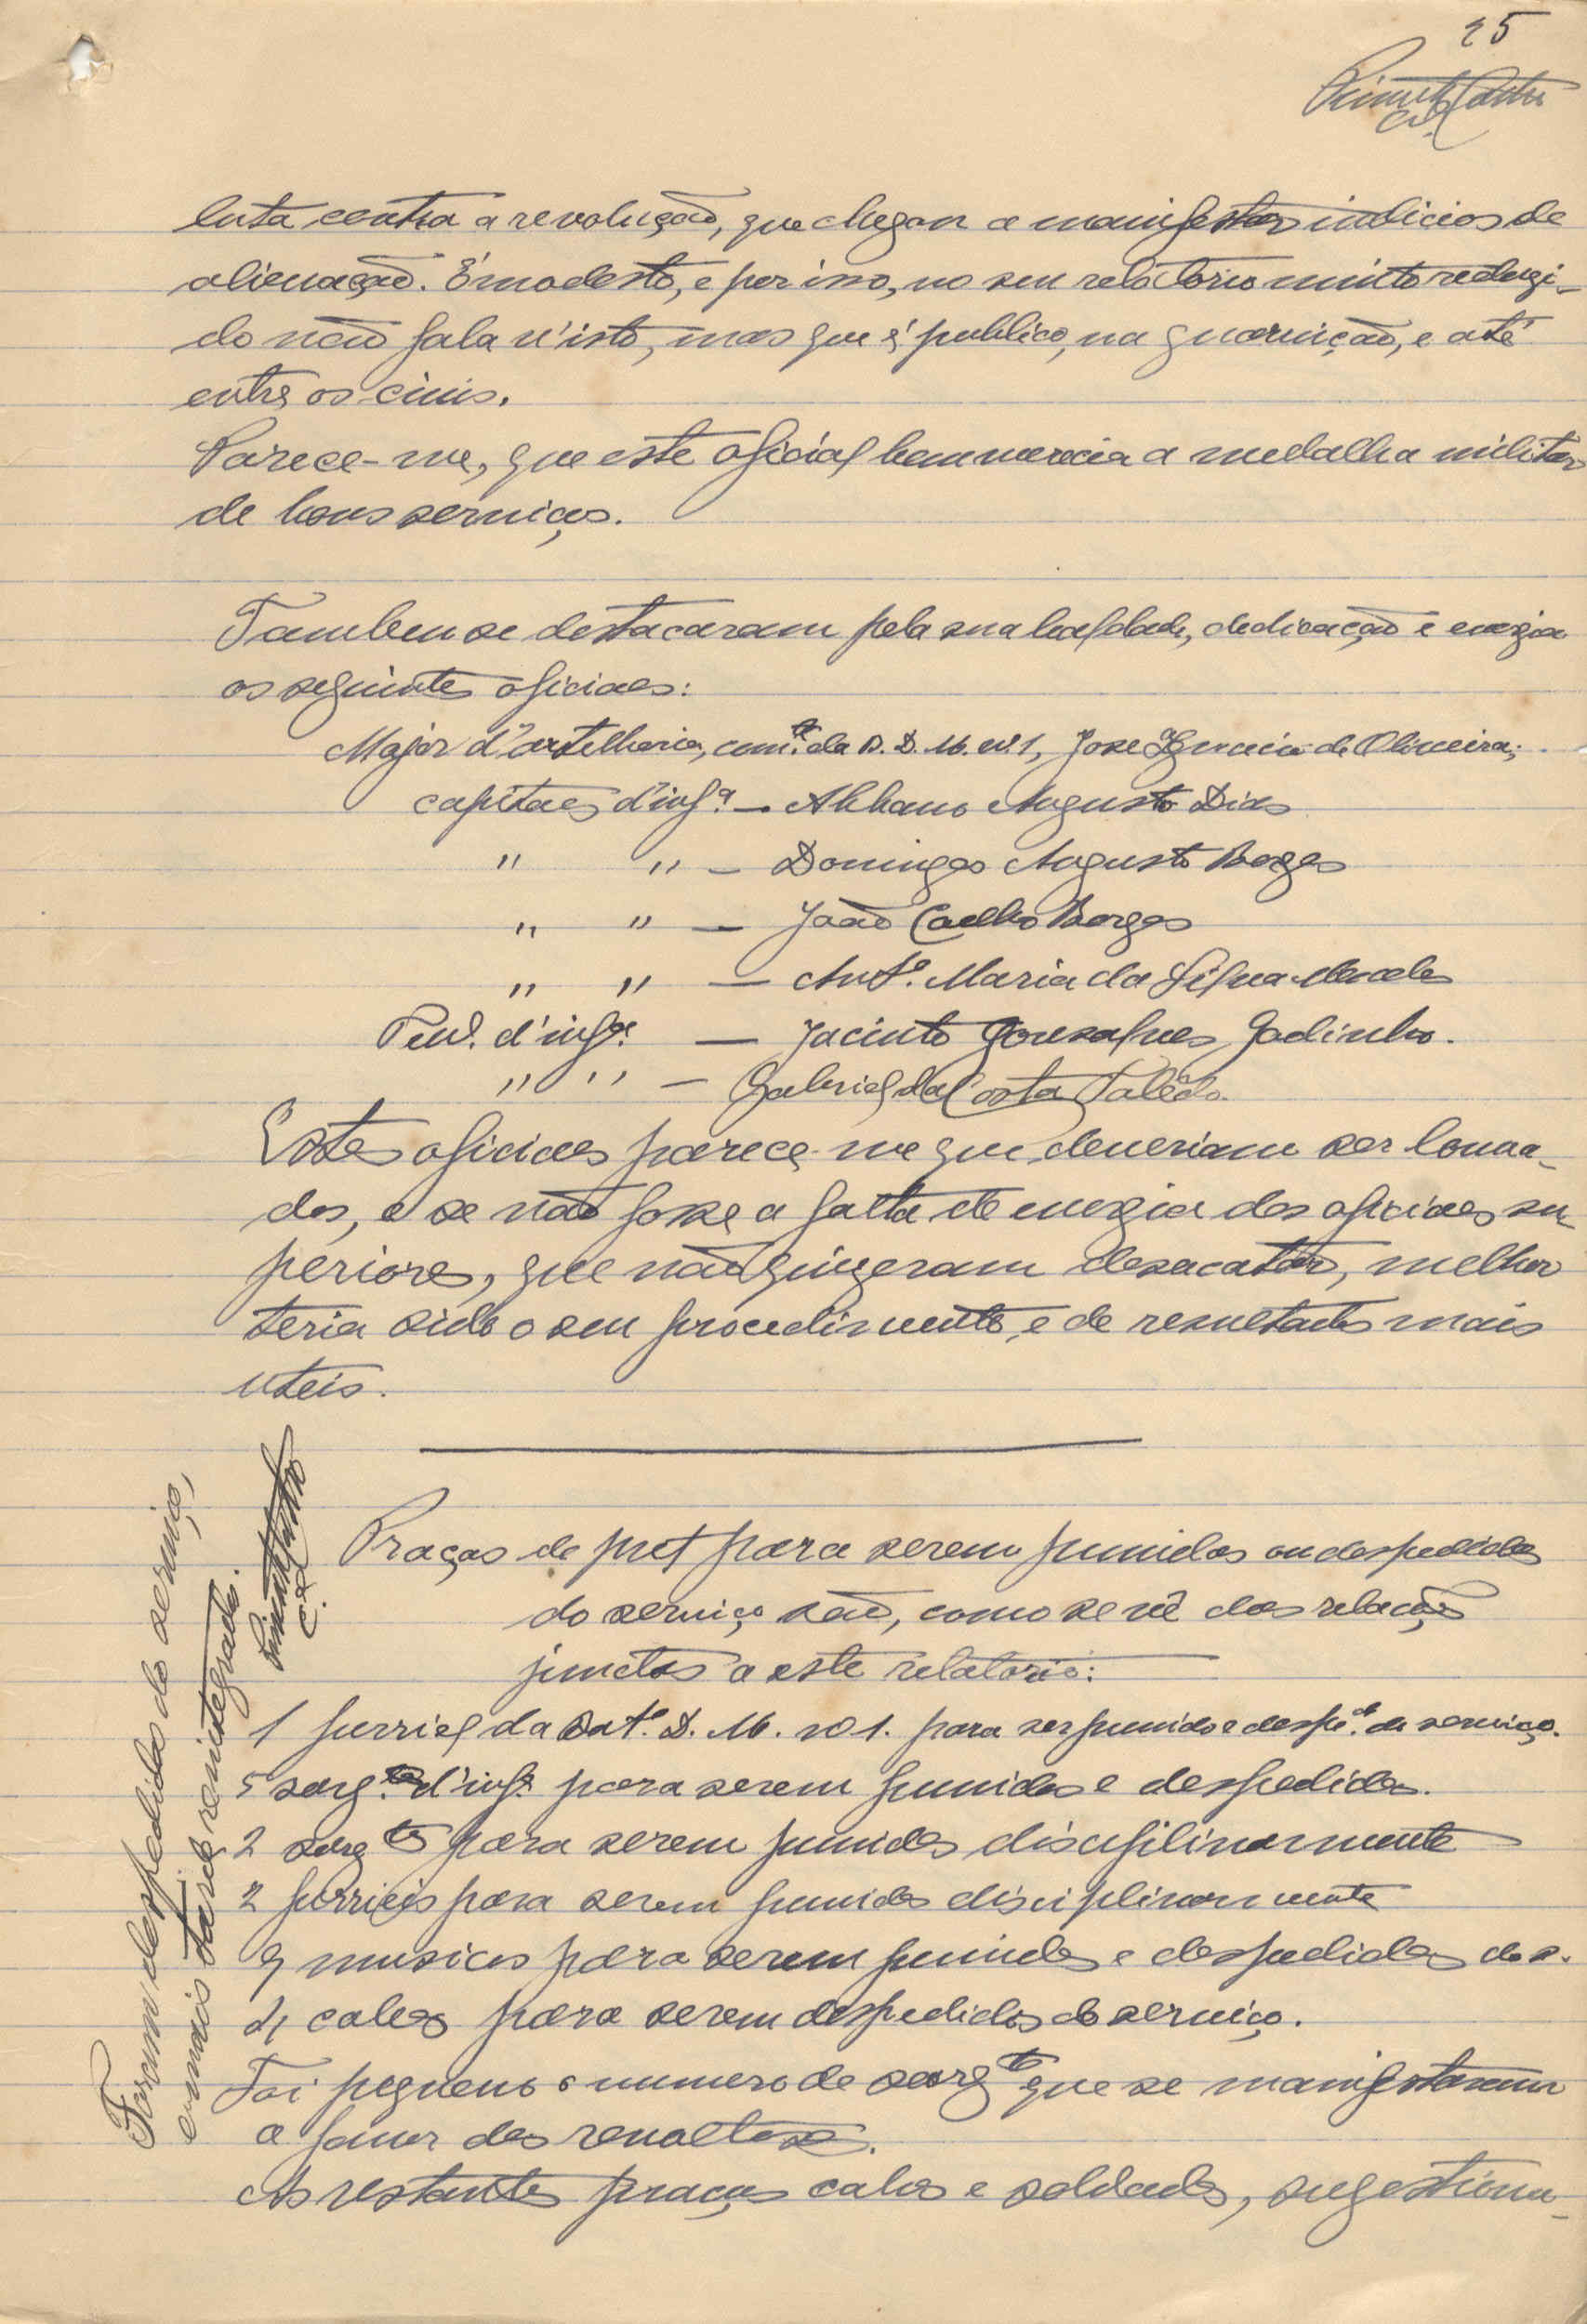 25
luta contra a revolução, que chegou a manifestar indicios de
alienação. É modesto, e por isso, no seu relatorio muito reduzi-
do não fala n'isto, mas que é publico, na guarnição, e até
entre os civis.
Parece-me, que este oficial bem merecia a medalha militar
de bons serviços.
Tambem se destacaram pela sua lealdade, dedicação e energia
os seguintes oficiaes:
Major d'artelharia, comte. da B. D. M. nº 1, José Ignacio de Oliveira;
capitães d'infª. — Albano Augusto Dias
" " — Domingos Augusto Borges
" " — João Coelho Borges
" " — Antº. Maria da Silva
Ten. d'infª. — Jacinto Gonsalves Godinho.
" " — Gabriel da Costa Talêdo.
Estes oficiaes parece-me que deveriam ser louva-
dos, e se não fosse a falta de energia dos oficiaes su-
periores, que não quizeram desacatar, melhor
teria sido o seu procedimento, e de resultados mais
uteis.
Praças de pret para serem punidos ou despedidos
do serviço são, como se vê das relações
junctas a este relatorio:
1 furriel da Batª. D. M. nº 1. para ser punido e despdo. do serviço.
5 sargtos. d'infª. para serem punidos e despedidos.
2 sargtos para serem punidos disciplinarmente
2 furrieis para serem punidos disciplinarmente
9 musicos para serem punidos e despedidos do s.
4 cabos para serem despedidos do serviço.
Foi pequeno o numero de sargtos que se manifestaram
a favor dos revoltosos.
As restantes praças cabos e soldados, sugestiona-
Foram despedidos do serviço,
e mais tarde reintegrados.